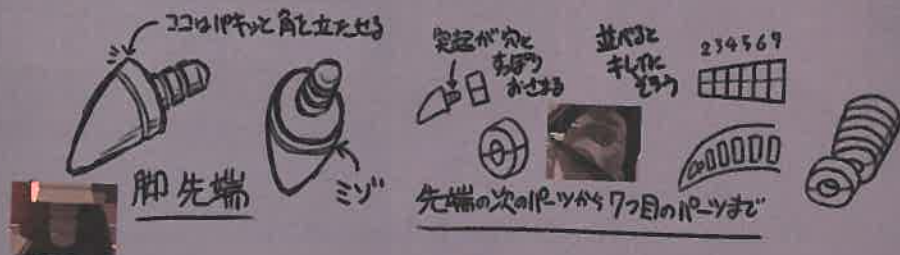 ココはパキッと角を立たせる
脚先端
ミゾ
突起が穴と
すっぽり
おさまる
並べると
キレイに
そろう
2 3 4 5 6 7
先端の次のパーツから7つ目のパーツまで